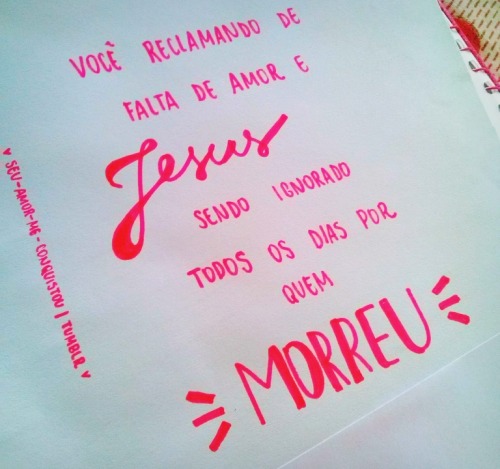 VOCÊ RECLAMANDO DE
FALTA DE AMOR E
Jesus
SENDO IGNORADO
TODOS OS DIAS POR
QUEM
MORREU
♥ SEU-AMOR-ME-CONQUISTOU | TUMBLR ♥